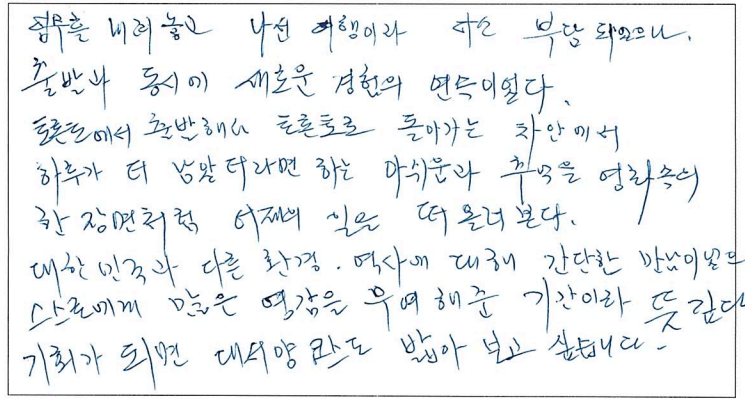 업무를 내려놓고 나선 여행이라 다소 부담 되었으나,
출발과 동시에 새로운 경험의 연속이었다.
토론토에서 출발해서 토론토로 돌아가는 차안에서
하루가 더 남았더라면 하는 아쉬움과 추억을 영화속의
한 장면처럼 어제의 일을 떠 올려 본다.
대한민국과 다른 환경. 역사에 대해 간단한 만남이었으
스스로에게 많은 영감을 부여해준 기간이라 뜻 깊다
기회가 되면 대서양 코스도 밟아 보고 싶습니다.